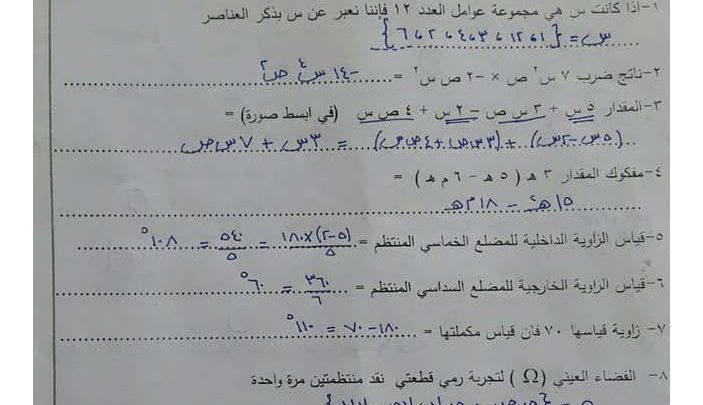 ١-اذا كانت س هي مجموعة عوامل العدد ١٢ فإننا نعبر عن س بذكر العناصر
س = {٦،٢،٤،٣،١٢،١}
٢-ناتج ضرب ٧ س٢ ص × -٢ ص س٢ = -١٤ س٤ ص٢
٣-المقدار ٥ س + ٣ س ص - ٢ س + ٤ ص س (في ابسط صورة) =
(٥س-٢س) + (٣س ص + ٤ص س) = ٣س + ٧س ص
٤-مفكوك المقدار ٣ هـ ( ٥ هـ - ٦ م هـ ) =
١٥هـ٢ - ١٨م هـ
٥-قياس الزاوية الداخلية للمضلع الخماسي المنتظم = (٥-٢)×١٨٠/٥ = ٥٤٠/٥ = ١٠٨°
٦-قياس الزاوية الخارجية للمضلع السداسي المنتظم = ٣٦٠/٦ = ٦٠°
٧- زاوية قياسها ٧٠ فان قياس مكملتها = ١٨٠-٧٠ = ١١٠°
٨- الفضاء العيني (Ω) لتجربة رمي قطعتي نقد منتظمتين مرة واحدة